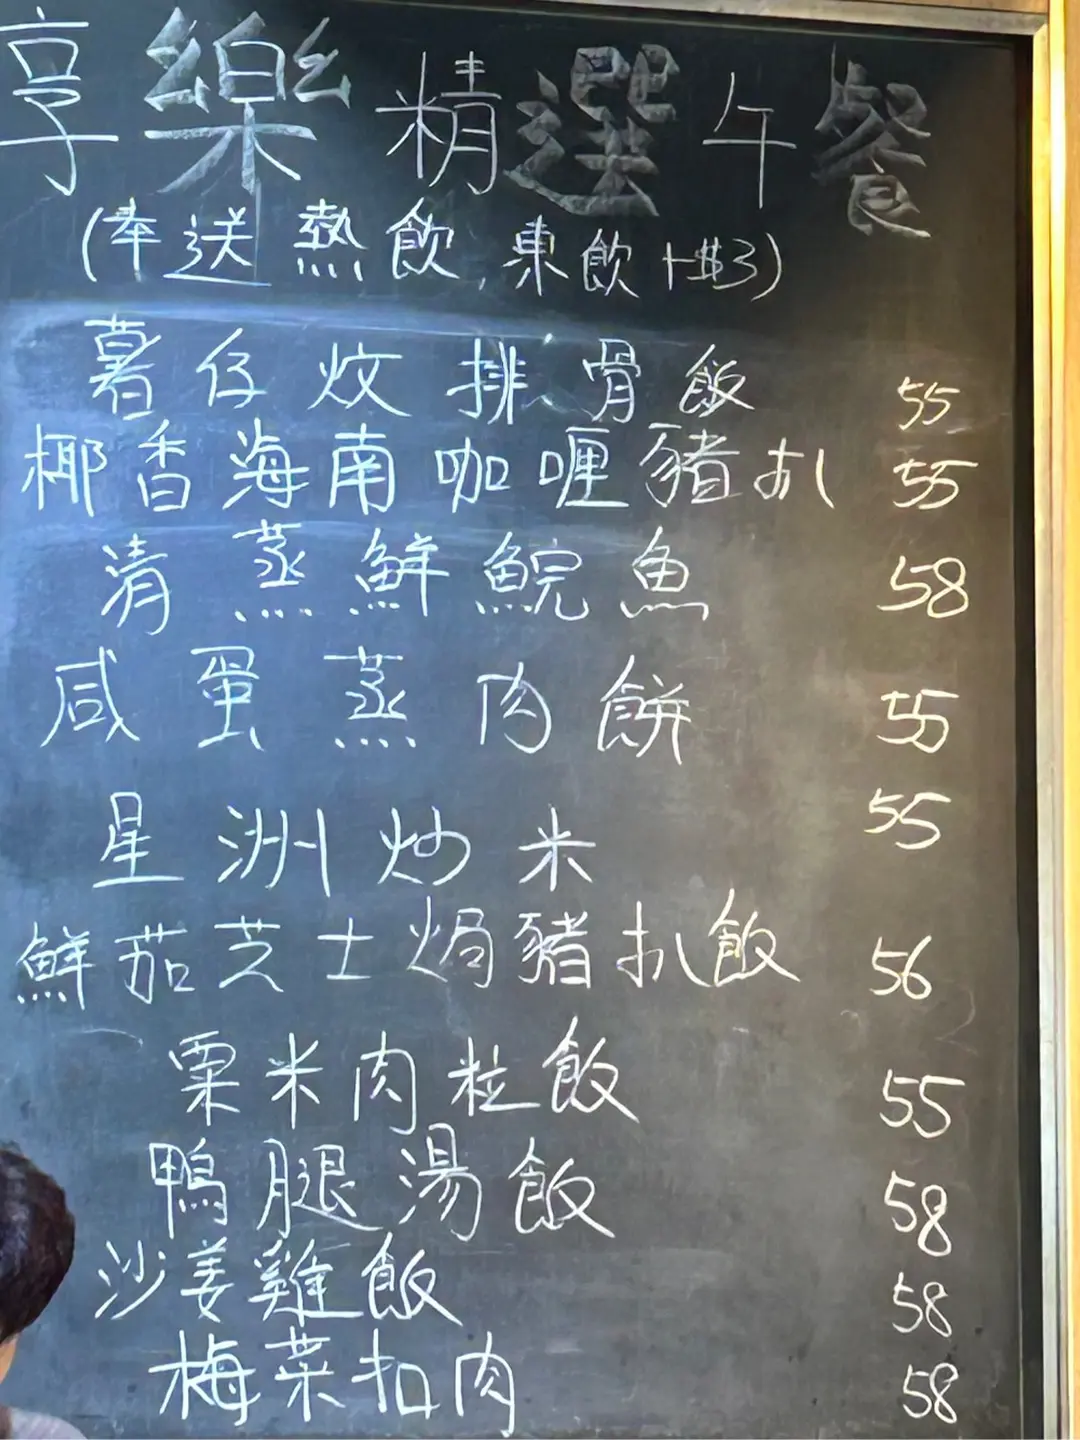 享樂精選午餐
(奉送熱飲,東飲+$3)
薯仔炆排骨飯 55
椰香海南咖喱豬扒 55
清蒸鮮鯇魚 58
咸蛋蒸肉餅 55
星洲炒米 55
鮮茄芝士焗豬扒飯 56
粟米肉粒飯 55
鴨腿湯飯 58
沙姜雞飯 58
梅菜扣肉 58